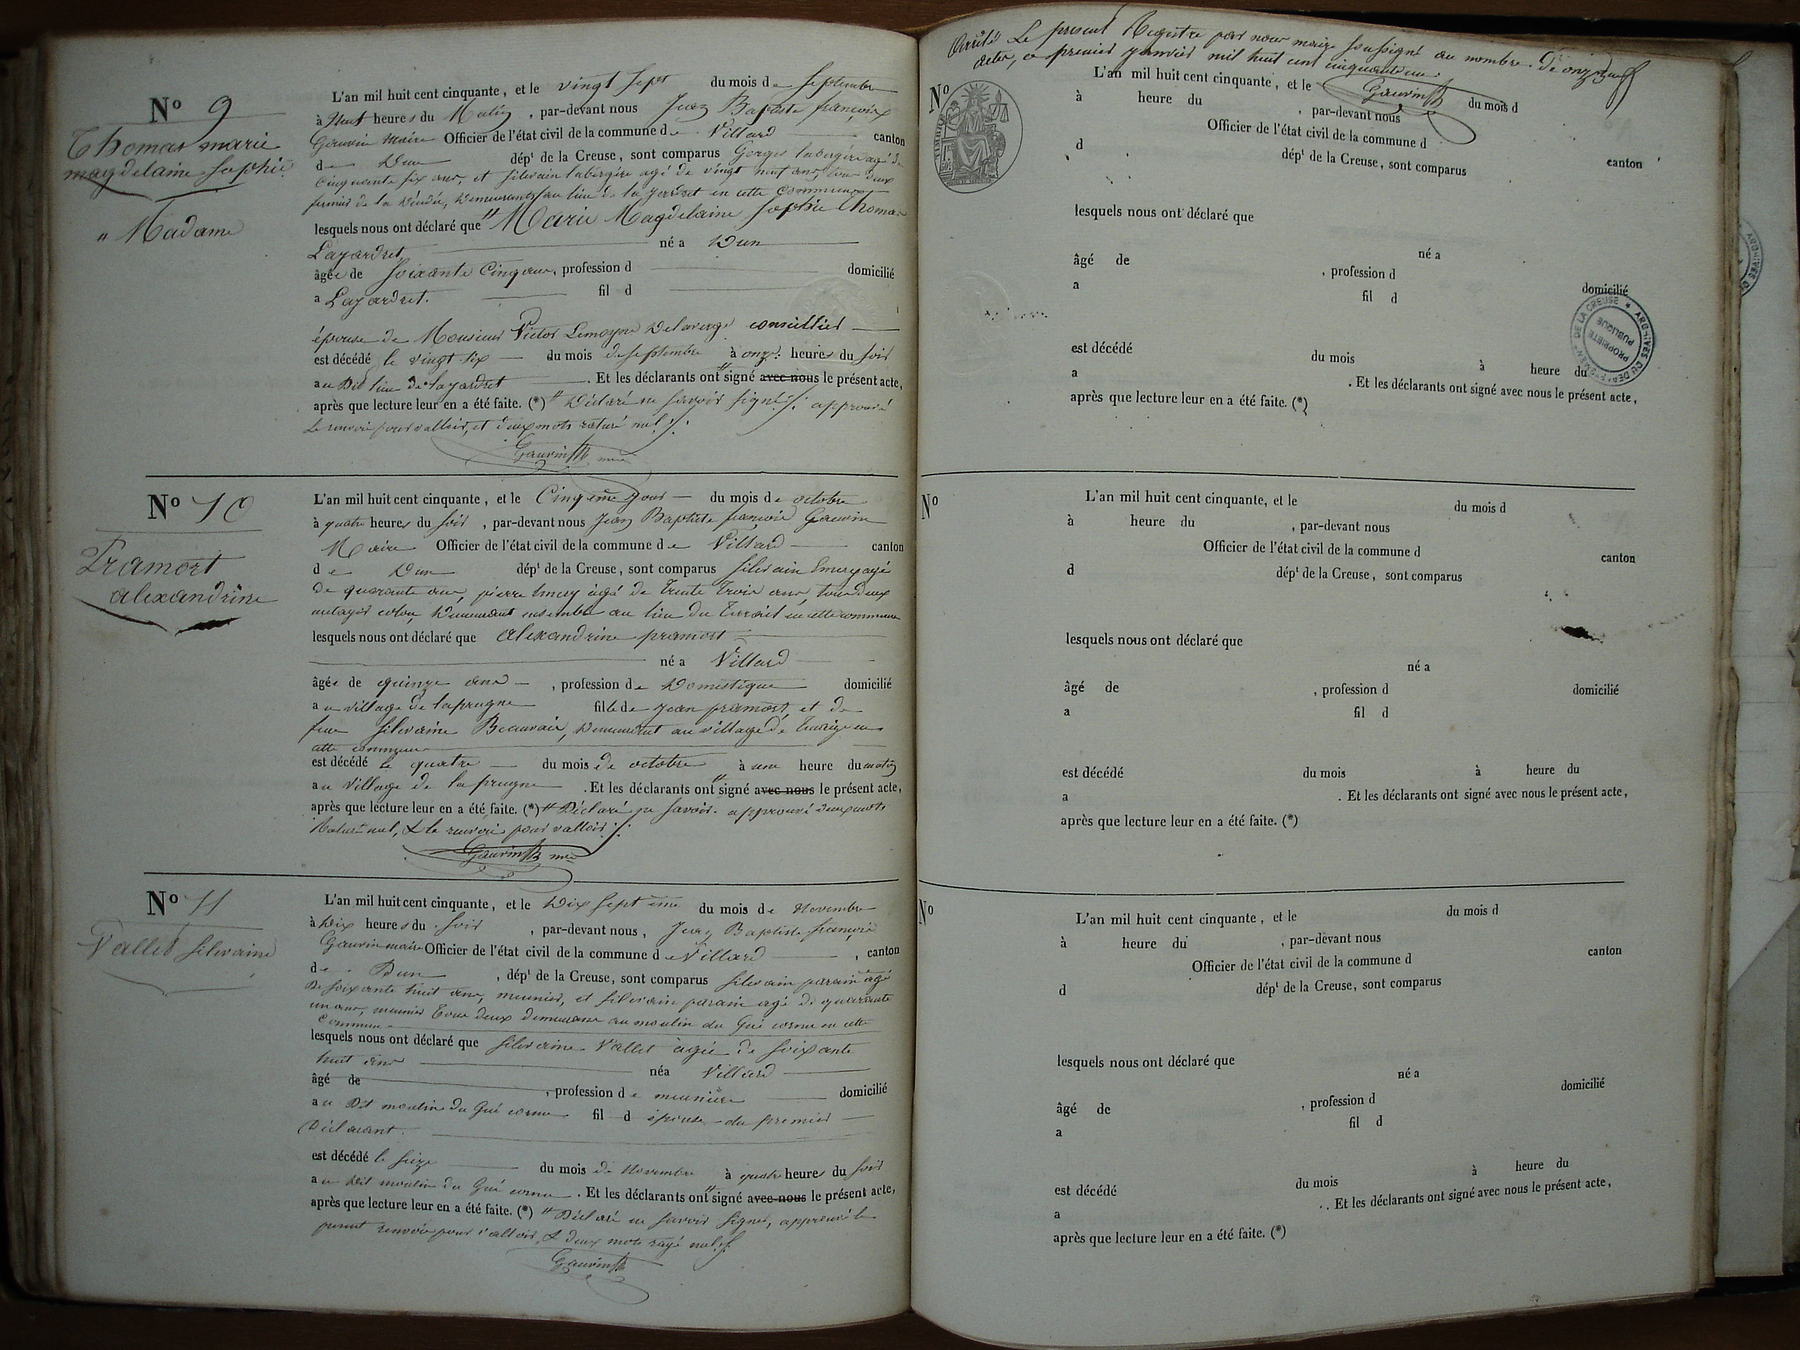 Nº 9
Thomas marie
magdelaine Sophie
" Madame
L'an mil huit cent cinquante, et le vingt Sept du mois de Septembre
à Neuf heures du Matin, par-devant nous Jean Baptiste françois
Gauvin Maire Officier de l'état civil de la commune de Villard canton
de Dun dépt de la Creuse, sont comparus Georges labergère agé de
Cinquante Six ans, et Silvain labergère agé de vingt neuf ans tous deux
demeurants au lieu de en cette commune
lesquels nous ont déclaré que Marie Magdelaine Sophie Thomas
Lazardret né a Dun
âgée de Soixante Cinq ans, profession d domicilié
a Lazardret. fil d
épouse de Monsieur Victor Lemoyne Delaverge conseillier
est décédé le vingt Six du mois de Septembre à onze heures du Soir
au Dit lieu de lazardret . Et les déclarants ont signé avec nous le présent acte,
après que lecture leur en a été faite. (*) Déclaré ne savoir signé; approuvé
le renvoi pour valloir, et deux mots raturé nul
Gauvin mre
Nº 10
Pramort
alexandrine
L'an mil huit cent cinquante, et le Cinqième Jour du mois de octobre
à quatre heures du Soir, par-devant nous Jean Baptiste françois Gauvin
Maire Officier de l'état civil de la commune de Villard canton
de Dun dépt de la Creuse, sont comparus Silvain Emery agé
de quarante ans, pierre Emery agé de Trente Trois ans, tous deux
colon, Demeurant ensemble au lieu du en cette commune
lesquels nous ont déclaré que alexandrine pramort
né a Villard
âgée de quinze ans, profession de Domestique domicilié
au village de laprugne fille de Jean pramort et de
feue Silvaine Beauvais, Demeurant au village de en
cette commune
est décédé le quatre du mois de octobre à une heure du matin
au Village de la prugne . Et les déclarants ont signé avec nous le présent acte,
après que lecture leur en a été faite. (*) Déclaré ne Savoir. approuvé deux mots
Raturé nul, & le renvoi pour valloir
Gauvin mre
Nº 11
Vallet Silvaine
L'an mil huit cent cinquante, et le Dix Septième du mois de Novembre
à Dix heures du Soir, par-devant nous, Jean Baptiste françois
Gauvin maire Officier de l'état civil de la commune de Villard, canton
de Dun, dépt de la Creuse, sont comparus Silvain parain agé
De Soixante huit ans, meunier, et Silvain parain agé de quarante
un ans, meunier Tous deux demeurans au moulin du Gué cornu en cette
Commune
lesquels nous ont déclaré que Silvaine Vallet agée de Soixante
huit ans né a Villard
âgé de , profession de meunière domicilié
au Dit moulin du Gué cornu fil d épouse du premier
Déclarant.
est décédé le Seize du mois de Novembre à quatre heures du Soir
au dit moulin du Gué cornu. Et les déclarants ont signé avec nous le présent acte,
après que lecture leur en a été faite. (*) Déclaré ne Savoir Signer, approuvé le
présent renvoi pour valloir, & deux mots rayé nul
Gauvin
Arrêté Le présent Registre par nous maire Soussigné au nombre de onze
actes, ce premier janvier mil huit cent cinquante un.
Gauvin
Nº
L'an mil huit cent cinquante, et le du mois d
à heure du , par-devant nous
Officier de l'état civil de la commune d
d dépt de la Creuse, sont comparus canton
lesquels nous ont déclaré que
né a
âgé de , profession d
a fil d domicilié
ARCHIVES DU DÉPARTEMENT DE LA CREUSE
PROPRIÉTÉ PUBLIQUE
est décédé du mois à heure du
a . Et les déclarants ont signé avec nous le présent acte,
après que lecture leur en a été faite. (*)
Nº
L'an mil huit cent cinquante, et le du mois d
à heure du , par-devant nous
Officier de l'état civil de la commune d canton
d dépt de la Creuse, sont comparus
lesquels nous ont déclaré que
né a
âgé de , profession d domicilié
a fil d
est décédé du mois à heure du
a . Et les déclarants ont signé avec nous le présent acte,
après que lecture leur en a été faite. (*)
Nº
L'an mil huit cent cinquante, et le du mois d
à heure du , par-devant nous
Officier de l'état civil de la commune d canton
d dépt de la Creuse, sont comparus
lesquels nous ont déclaré que
né a
âgé de , profession d domicilié
a fil d
est décédé du mois à heure du
a . Et les déclarants ont signé avec nous le présent acte,
après que lecture leur en a été faite. (*)